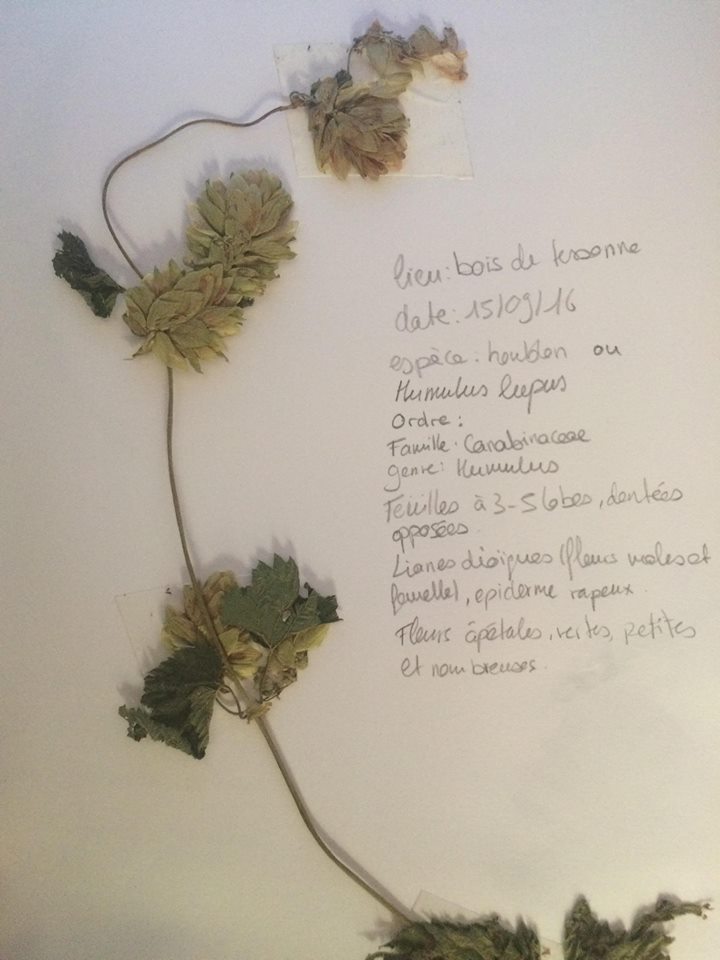 lieu: bois de lessonne
date: 15/09/16
espèce: houblon ou
Humulus lupus
Ordre:
Famille: Canabinaceae
genre: Humulus
Feuilles à 3-5 lobes, dentées
opposées.
Lianes dioïques (fleurs males et
femelle), epiderme rapeux.
Fleurs apétales, vertes, petites
et nombreuses.